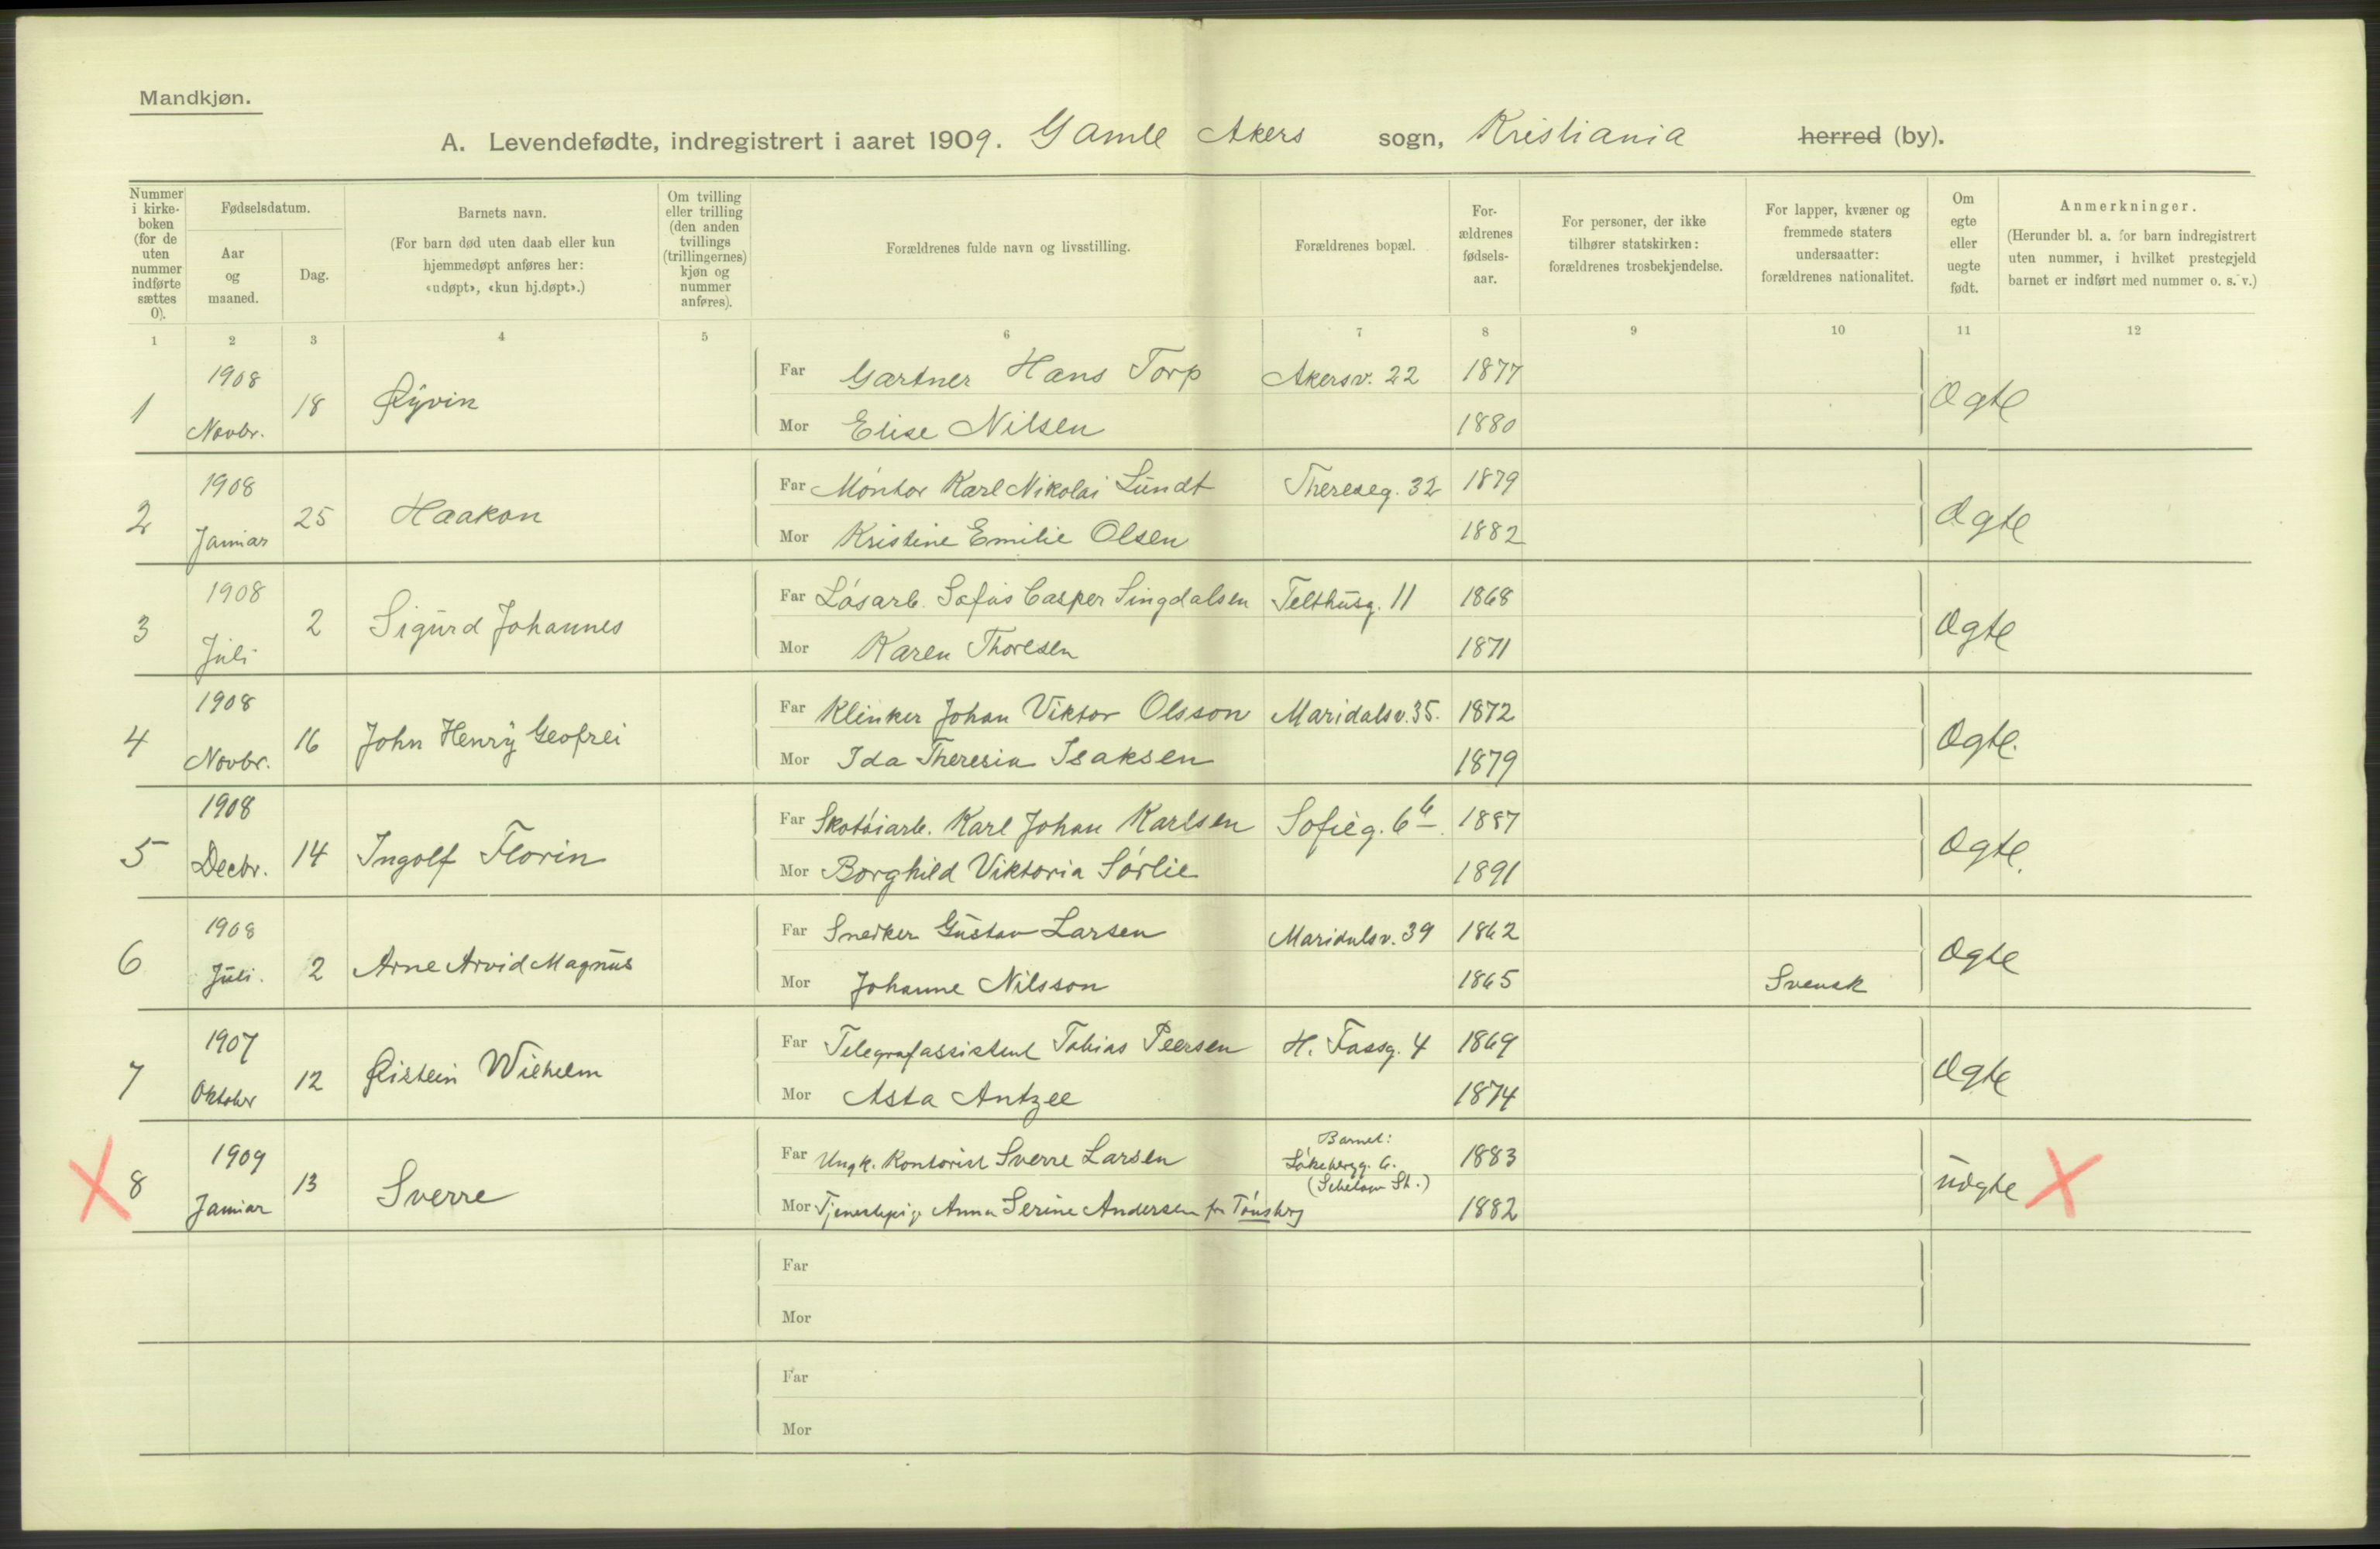 Mandkjøn.
A. Levendefødte, indregistrert i aaret 1909. Gamle Akers sogn, Kristiania herred (by).
Nummer i kirke-boken (for de uten nummer indførte sættes 0).
Fødselsdatum.
Aar og maaned.
Dag.
Barnets navn.
(For barn død uten daab eller kun hjemmedøpt anføres her: «udøpt», «kun hj.døpt».)
Om tvilling eller trilling (den anden tvillings (trillingernes) kjøn og nummer anføres).
Forældrenes fulde navn og livsstilling.
Forældrenes bopæl.
For-ældrenes fødsels-aar.
For personer, der ikke tilhører statskirken: forældrenes trosbekjendelse.
For lapper, kvæner og fremmede staters undersaatter: forældrenes nationalitet.
Om egte eller uegte født.
Anmerkninger.
(Herunder bl. a. for barn indregistrert uten nummer, i hvilket prestegjeld barnet er indført med nummer o. s. v.)
1 2 3 4 5 6 7 8 9 10 11 12
1 1908 Novbr. 18 Øyvin
Far Gartner Hans Torp Akersv. 22 1877
Mor Elise Nilsen 1880
Ægte
2 1908 Januar 25 Haakon
Far Montør Karl Nikolai Lundt Thereseg. 32 1879
Mor Kristine Emilie Olsen 1882
Ægte
3 1908 Juli 2 Sigurd Johannes
Far Løsarb. Sofus Casper Singdalsen Telthusg. 11 1868
Mor Karen Thoresen 1871
Ægte
4 1908 Novbr. 16 John Henry Geofrei
Far Klinker Johan Viktor Olsson Maridalsv. 35. 1872
Mor Ida Theresia Isaksen 1879
Ægte.
5 1908 Decbr. 14 Ingolf Florin
Far Skotøiarb. Karl Johan Karlsen Sofieg. 6b. 1887
Mor Borghild Viktoria Sørlie 1891
Ægte.
6 1908 Juli. 2 Arne Arvid Magnus
Far Snekker Gustav Larsen Maridalsv. 39 1862
Mor Johanne Nilsson 1865 Svensk
Ægte
7 1907 Oktober 12 Øistein Wilhelm
Far Telegrafassistent Tobias Peersen H. Fossg. 4 1869
Mor Asta Antzee 1874
Ægte
8 1909 Januar 13 Sverre
Far Ungk. Kontorist Sverre Larsen Barnet: 1883
Mor Tjenestepige Anna Serine Andersen fr Tønsberg 1882
uægte
Far
Mor
Far
Mor